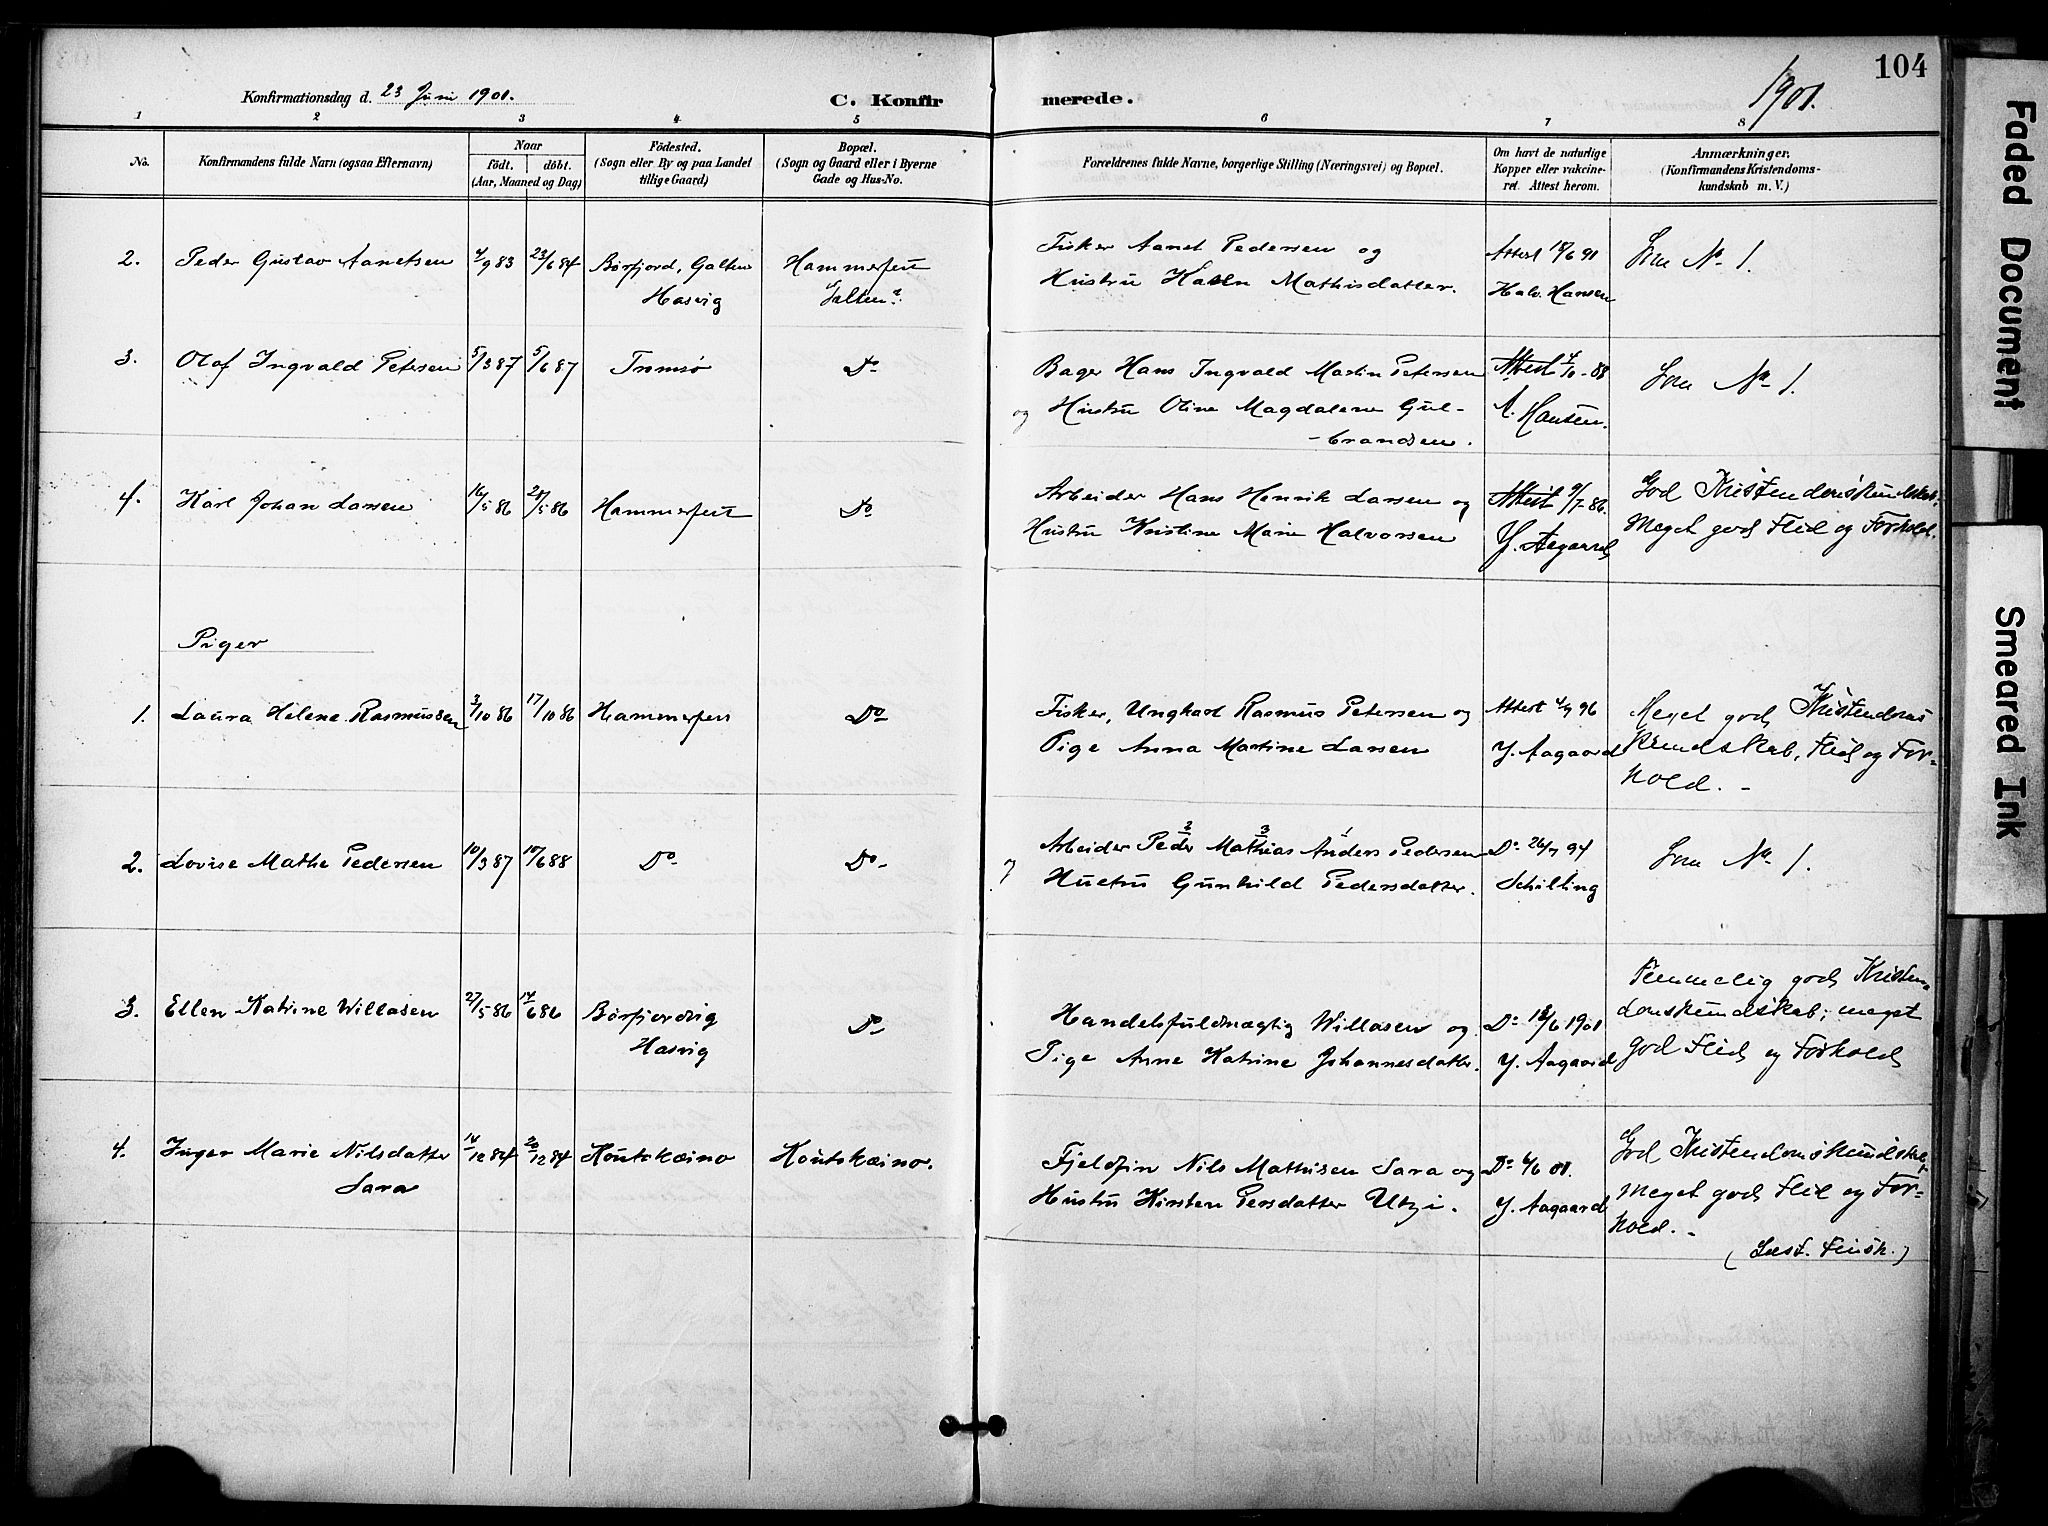 104
Konfirmationsdag d. 23 Juni 1901.
C. Konfirmerede.
1901.
1 2 3 4 5 6 7 8
No.
Konfirmandens fulde Navn (ogsaa Efternavn)
Naar
födt. döbt.
(Aar, Maaned og Dag)
Födested.
(Sogn eller By og paa Landet
tillige Gaard)
Bopæl.
(Sogn og Gaard eller i Byerne
Gade og Hus-No.
Forældrenes fulde Navne, borgerlige Stilling (Næringsvei) og Bopæl.
Om havt de naturlige
Kopper eller vakcine-
ret. Attest herom.
Anmærkninger.
(Konfirmandens Kristendoms-
kundskab m. V.)
2. Peder Gustav Aanetsen 4/9 83 23/6 84 Børfjord, Galten Hammerfest Fisker Aanet Pedersen og Attest 18/6 91 Som No 1.
Hasvig Galten? Hustru Karen Mathisdatter. Halv. Hansen
3. Olaf Ingvald Petersen 5/3 87 5/6 87 Tromsø Do Bager Hans Ingvald Martin Petersen Attest 4/10 - 88 Som No 1.
og Hustru Oline Magdalene Gul- A. Hansen.
-brandsen.
4. Karl Johan Larsen 16/5 86 28/5 86 Hammerfest Do Arbeider Hans Henrik Larsen og Attest 9/7 - 86. God Kristendomskundskab,
Hustru Kristine Marie Halvorsen Y. Aagaard Meget god Flid og Forhold.
Piger
1. Laura Helene Rasmussen 3/10 86 17/10 86 Hammerfest Do Fisker, Ungkarl Rasmus Petersen og Attest 4/9 96 Meget god Kristendoms
Pige Anna Martine Larsen Y. Aagaard Kundskab, Flid og For-
hold. -
2. Lovise Mathe Pedersen 10/3 87 10/6 88 Do Do Arbeider Peder Mathias Anders Pedersen Do 26/7 94 Som No 1.
2 3 1
og Hustru Gunhild Pedersdatter. Schilling
3. Ellen Katrine Willasen 27/5 86 14/6 86 Børfjordvig Do Handelsfuldmægtig Willasen og Do 18/6 1901 Temmelig god Kristen-
Hasvig Pige Anne Katrine Johannesdatter. Y. Aagaard domskundskab; meget
god Flid og Forhold
4. Inger Marie Nilsdatter 14/12 84 20/12 84 Koutokæino Koutokæino. Fjeldfin Nils Mathisen Sara og Do 4/6 01. God Kristendomskundskab,
Sara Hustru Kirsten Persdatter Utzi. Y. Aagaard Meget god Flid og For-
hold. -
(Læst. Finsk.)
Faded Document
Smeared Ink